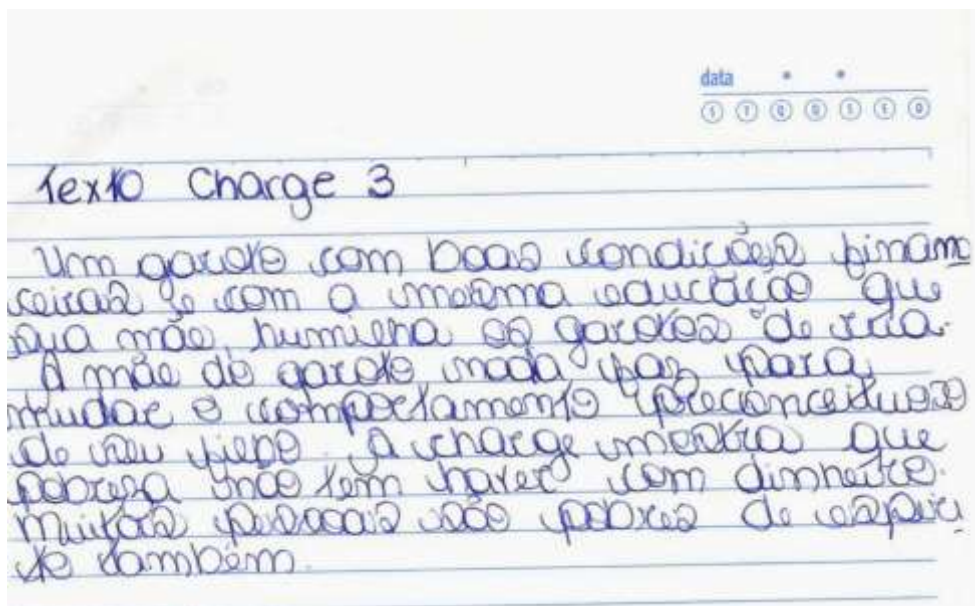 data
S T Q Q S S D
Texto Charge 3
Um garoto com boas condições finan
ceiras e com a mesma educação que
sua mãe, humilha os garotos de rua.
A mãe do garoto nada faz para
mudar o comportamento preconceituoso
de seu filho. A charge mostra que
pobreza não tem haver com dinheiro.
Muitas pessoas são pobres de espíri
to também.